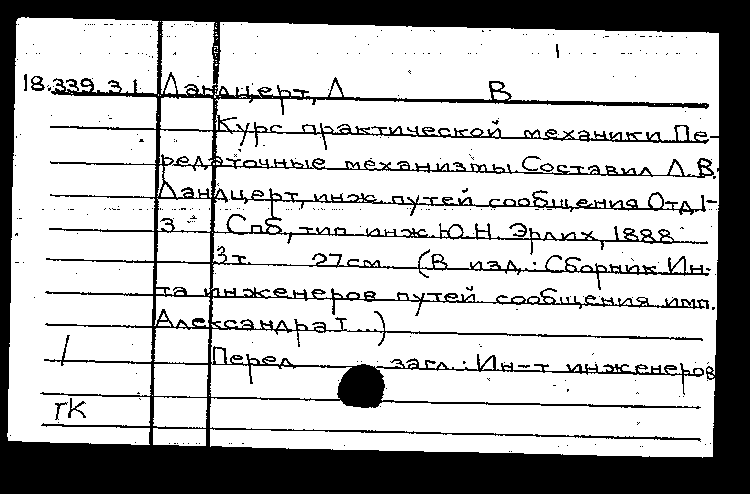 1
18.339.3.1 Ландцерт, Л В
Курс практической механики Пе-
редаточные механизмы. Составил Л.В.
Ландцерт, инж. путей сообщения Отд. 1-
3 Спб., тип инж. Ю.Н. Эрлих, 1888
3т 27см (В изд.: Сборник Ин-
та инженеров путей сообщения имп.
Александра I ...)
/ Перед загл.: Ин-т инженеров
ГК